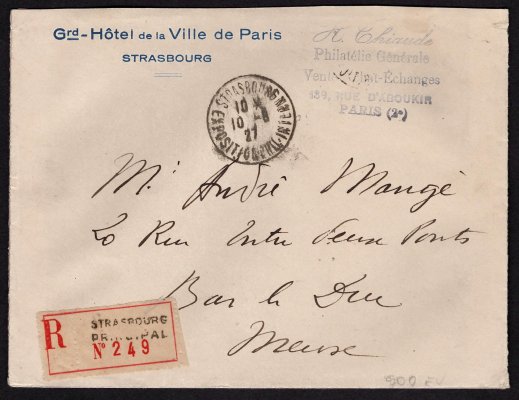 Grd-Hôtel de la Ville de Paris
STRASBOURG
A. Chiaude
Philatélie Générale
Vente-Achat-Échanges
139, RUE D'ABOUKIR
PARIS (2e)
STRASBOURG
10 *
10 -8
27
EXPOSITION
Mr André Mangé
20 Rue Entre Deux Ponts
Bar le Duc
Meuse
R
STRASBOURG
PRINCIPAL
No 249